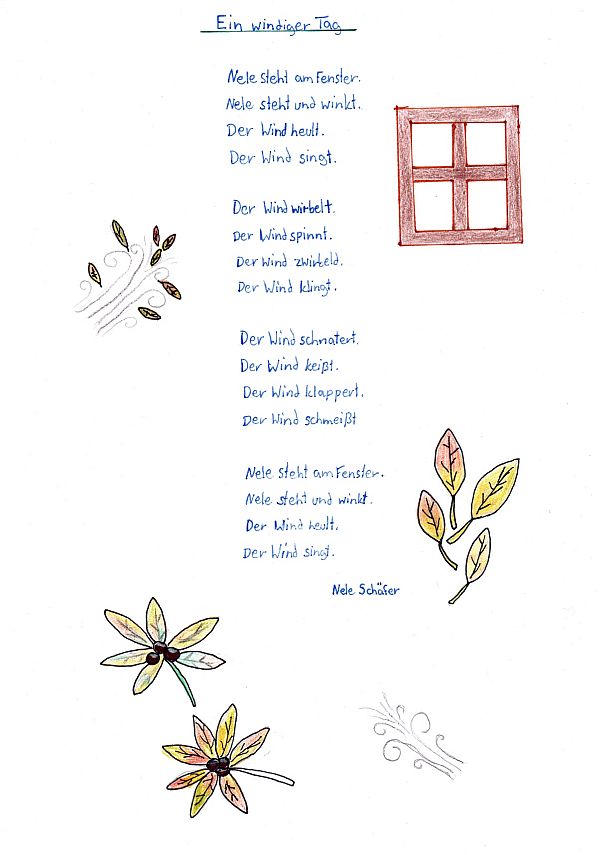 Ein windiger Tag
Nele steht am Fenster.
Nele steht und winkt.
Der Wind heult.
Der Wind singt.
Der Wind wirbelt.
Der Wind spinnt.
Der Wind zwirbeld.
Der Wind klingt.
Der Wind schnatert.
Der Wind keißt.
Der Wind klappert.
Der Wind schmeißt
Nele steht am Fenster.
Nele steht und winkt.
Der Wind heult.
Der Wind singt.
Nele Schäfer